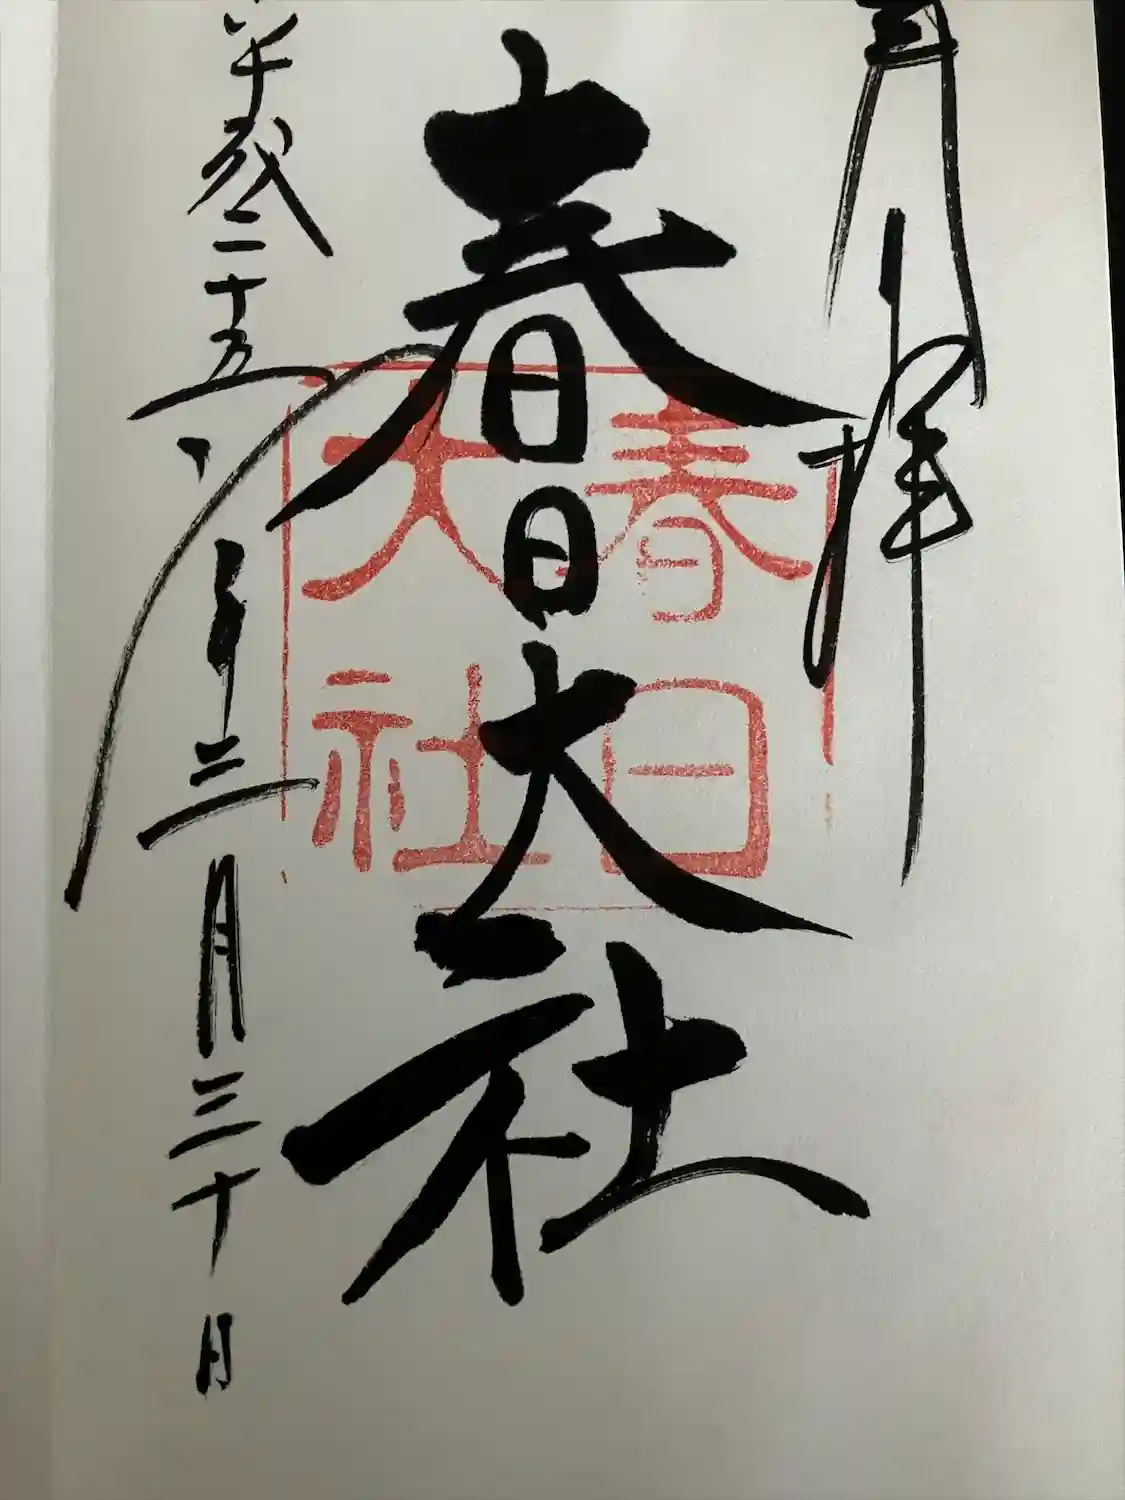 拝
春日大社
春日
大社
平成二十五年三月三十日